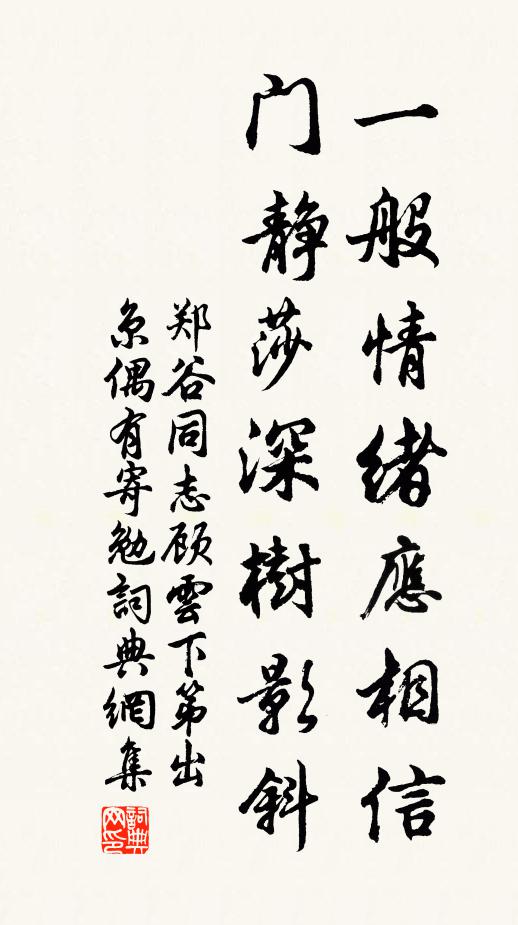 一般情绪應相信
门静莎深樹影斜
郑谷同志顾雲下第出
京偶有寄勉詞典網集
詞典网印